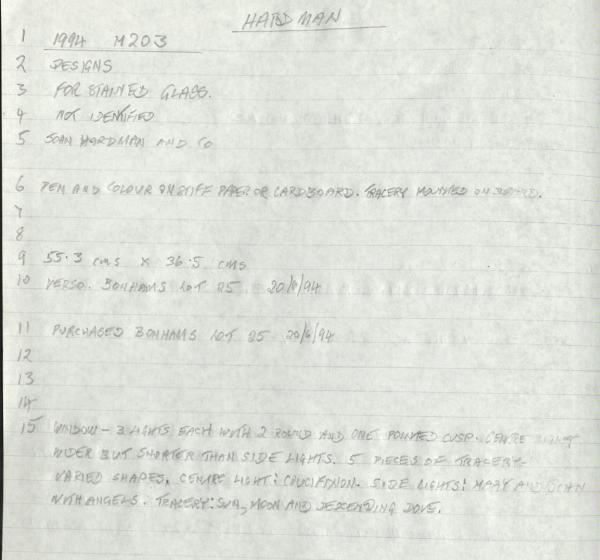 HARDMAN
1 1994 M203
2 DESIGNS
3 FOR STAINED GLASS.
4 NOT IDENTIFIED
5 JOHN HARDMAN AND CO
6 PEN AND COLOUR ON STIFF PAPER OR CARDBOARD. TRACERY MOUNTED ON BOARD.
7
8
9 55.3 cms x 36.5 cms
10 VERSO. BONHAMS LOT 25 20/6/94
11 PURCHASED BONHAMS LOT 25 20/6/94
12
13
14
15 WINDOW - 3 LIGHTS EACH WITH 2 ROUND AND ONE POINTED CUSP. CENTRE LIGHT
WIDER BUT SHORTER THAN SIDE LIGHTS. 5 PIECES OF TRACERY -
VARIED SHAPES. CENTRE LIGHT: CRUCIFIXION. SIDE LIGHTS: MARY AND JOHN
WITH ANGELS. TRACERY: SUN, MOON AND DESCENDING DOVE.